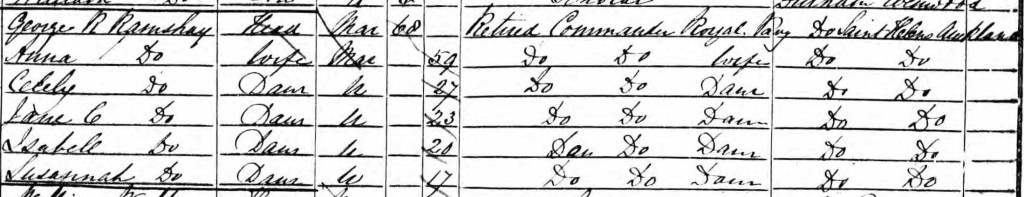 Do Scholar Durham
George R Ramshay Head Mar 68 Retired Commander Royal Navy Do Saint Helens Auckland
Anna Do Wife Mar 59 Do Do Wife Do Do
Cecely Do Daur U 27 Do Do Daur Do Do
Jane C Do Daur U 23 Do Do Daur Do Do
Isabell Do Daur U 20 Dau Do Daur Do Do
Susannah Do Daur U 17 Do Do Daur Do Do